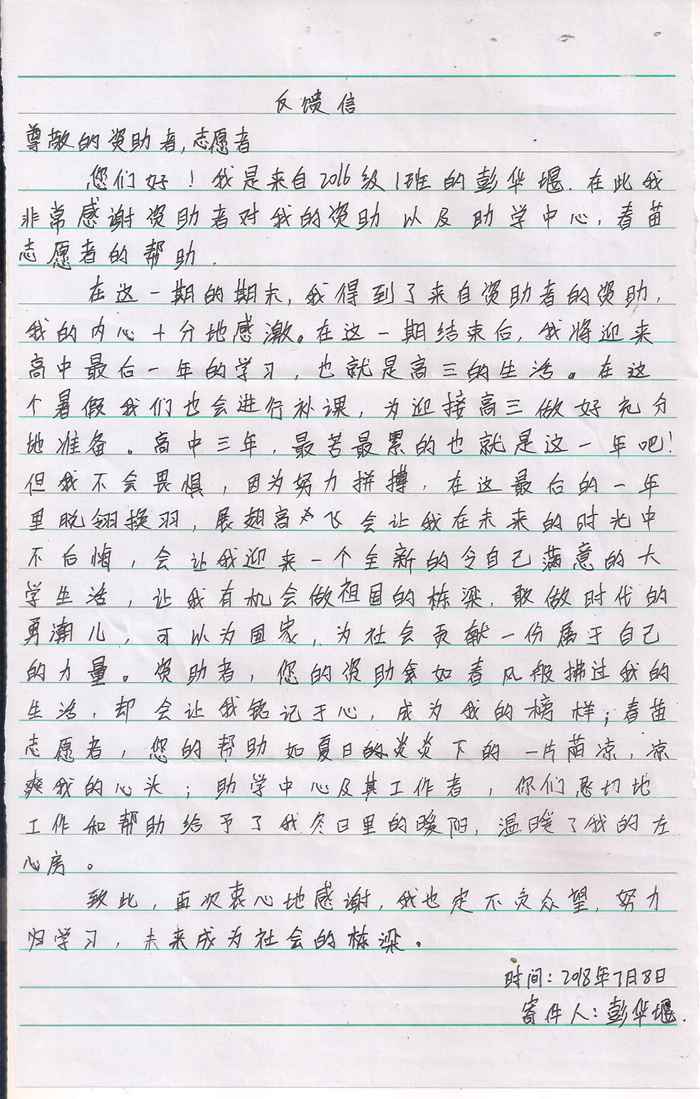 反馈信
尊敬的资助者,志愿者
您们好！我是来自2016级1班的彭华堰.在此我
非常感谢资助者对我的资助以及助学中心,春苗
志愿者的帮助.
在这一期的期末,我得到了来自资助者的资助,
我的内心十分地感激。在这一期结束后,我将迎来
高中最后一年的学习,也就是高三的生活。在这
个暑假我们也会进行补课,为迎接高三做好充分
地准备。高中三年,最苦最累的也就是这一年吧!
但我不会畏惧,因为努力拼搏,在这最后的一年
里脱翎换羽,展翅高飞会让我在未来的时光中
不后悔,会让我迎来一个全新的令自己满意的大
学生活,让我有机会做祖国的栋梁,敢做时代的
勇潮儿,可以为国家,为社会贡献一份属于自己
的力量。资助者,您的资助会如春风般拂过我的
生活,却会让我铭记于心,成为我的榜样;春苗
志愿者,您的帮助如夏日炎炎下的一片荫凉,凉
爽我的心头;助学中心及其工作者,你们切地
工作和帮助给予了我冬日里的暖阳,温暖了我的左
心房。
致此,再次衷心地感谢,我也定不负众望,努力
归学习,未来成为社会的栋梁。
时间:2018年7月8日
寄件人:彭华堰.